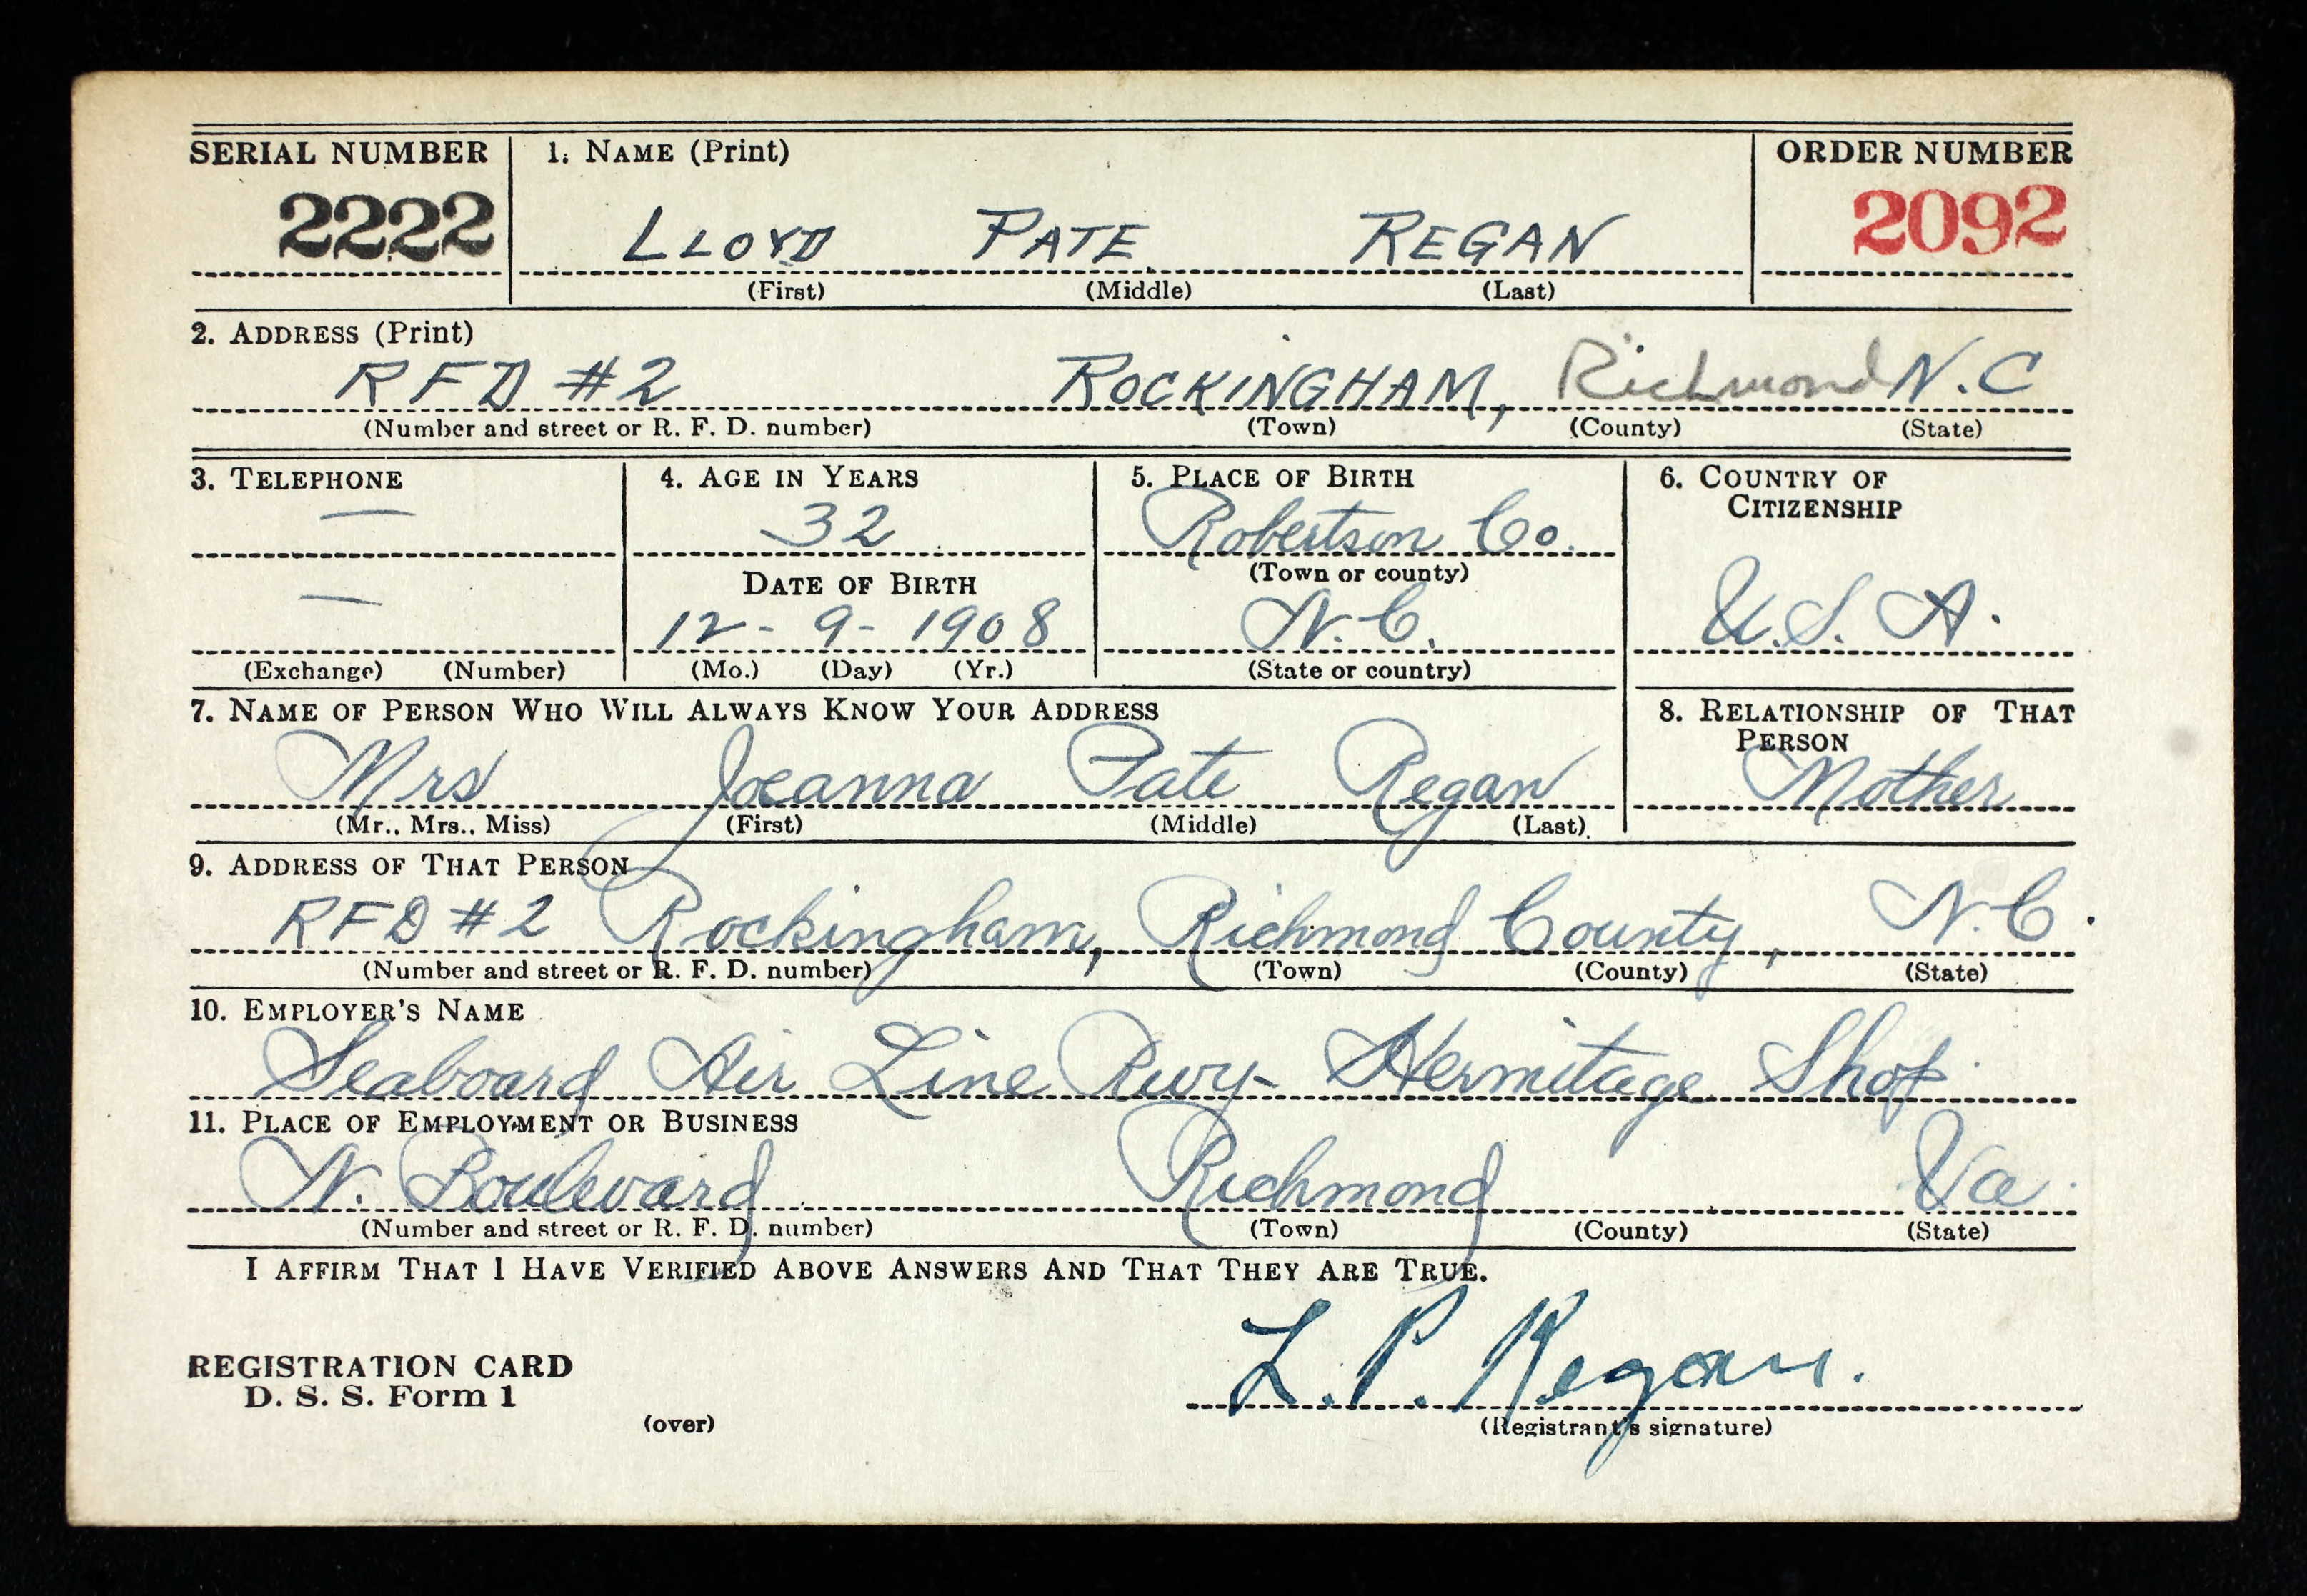 SERIAL NUMBER 1. NAME (Print) ORDER NUMBER
2222 LLOYD PATE REGAN 2092
(First) (Middle) (Last)
2. ADDRESS (Print)
RFD #2 ROCKINGHAM, Richmond N.C
(Number and street or R. F. D. number) (Town) (County) (State)
3. TELEPHONE 4. AGE IN YEARS 5. PLACE OF BIRTH 6. COUNTRY OF
CITIZENSHIP
— 32 Robertson Co.
DATE OF BIRTH (Town or county)
— 12 - 9 - 1908 N.C. U.S.A.
(Exchange) (Number) (Mo.) (Day) (Yr.) (State or country)
7. NAME OF PERSON WHO WILL ALWAYS KNOW YOUR ADDRESS 8. RELATIONSHIP OF THAT
PERSON
Mrs Joeanna Pate Regan Mother
(Mr., Mrs., Miss) (First) (Middle) (Last)
9. ADDRESS OF THAT PERSON
RFD #2 Rockingham, Richmond County, N.C.
(Number and street or R. F. D. number) (Town) (County) (State)
10. EMPLOYER'S NAME
Seaboard Air Line Rwy- Hermitage Shop
11. PLACE OF EMPLOYMENT OR BUSINESS
N. Boulevard Richmond Va.
(Number and street or R. F. D. number) (Town) (County) (State)
I AFFIRM THAT I HAVE VERIFIED ABOVE ANSWERS AND THAT THEY ARE TRUE.
REGISTRATION CARD
D. S. S. Form 1 L. P. Regan.
(over) (Registrant's signature)